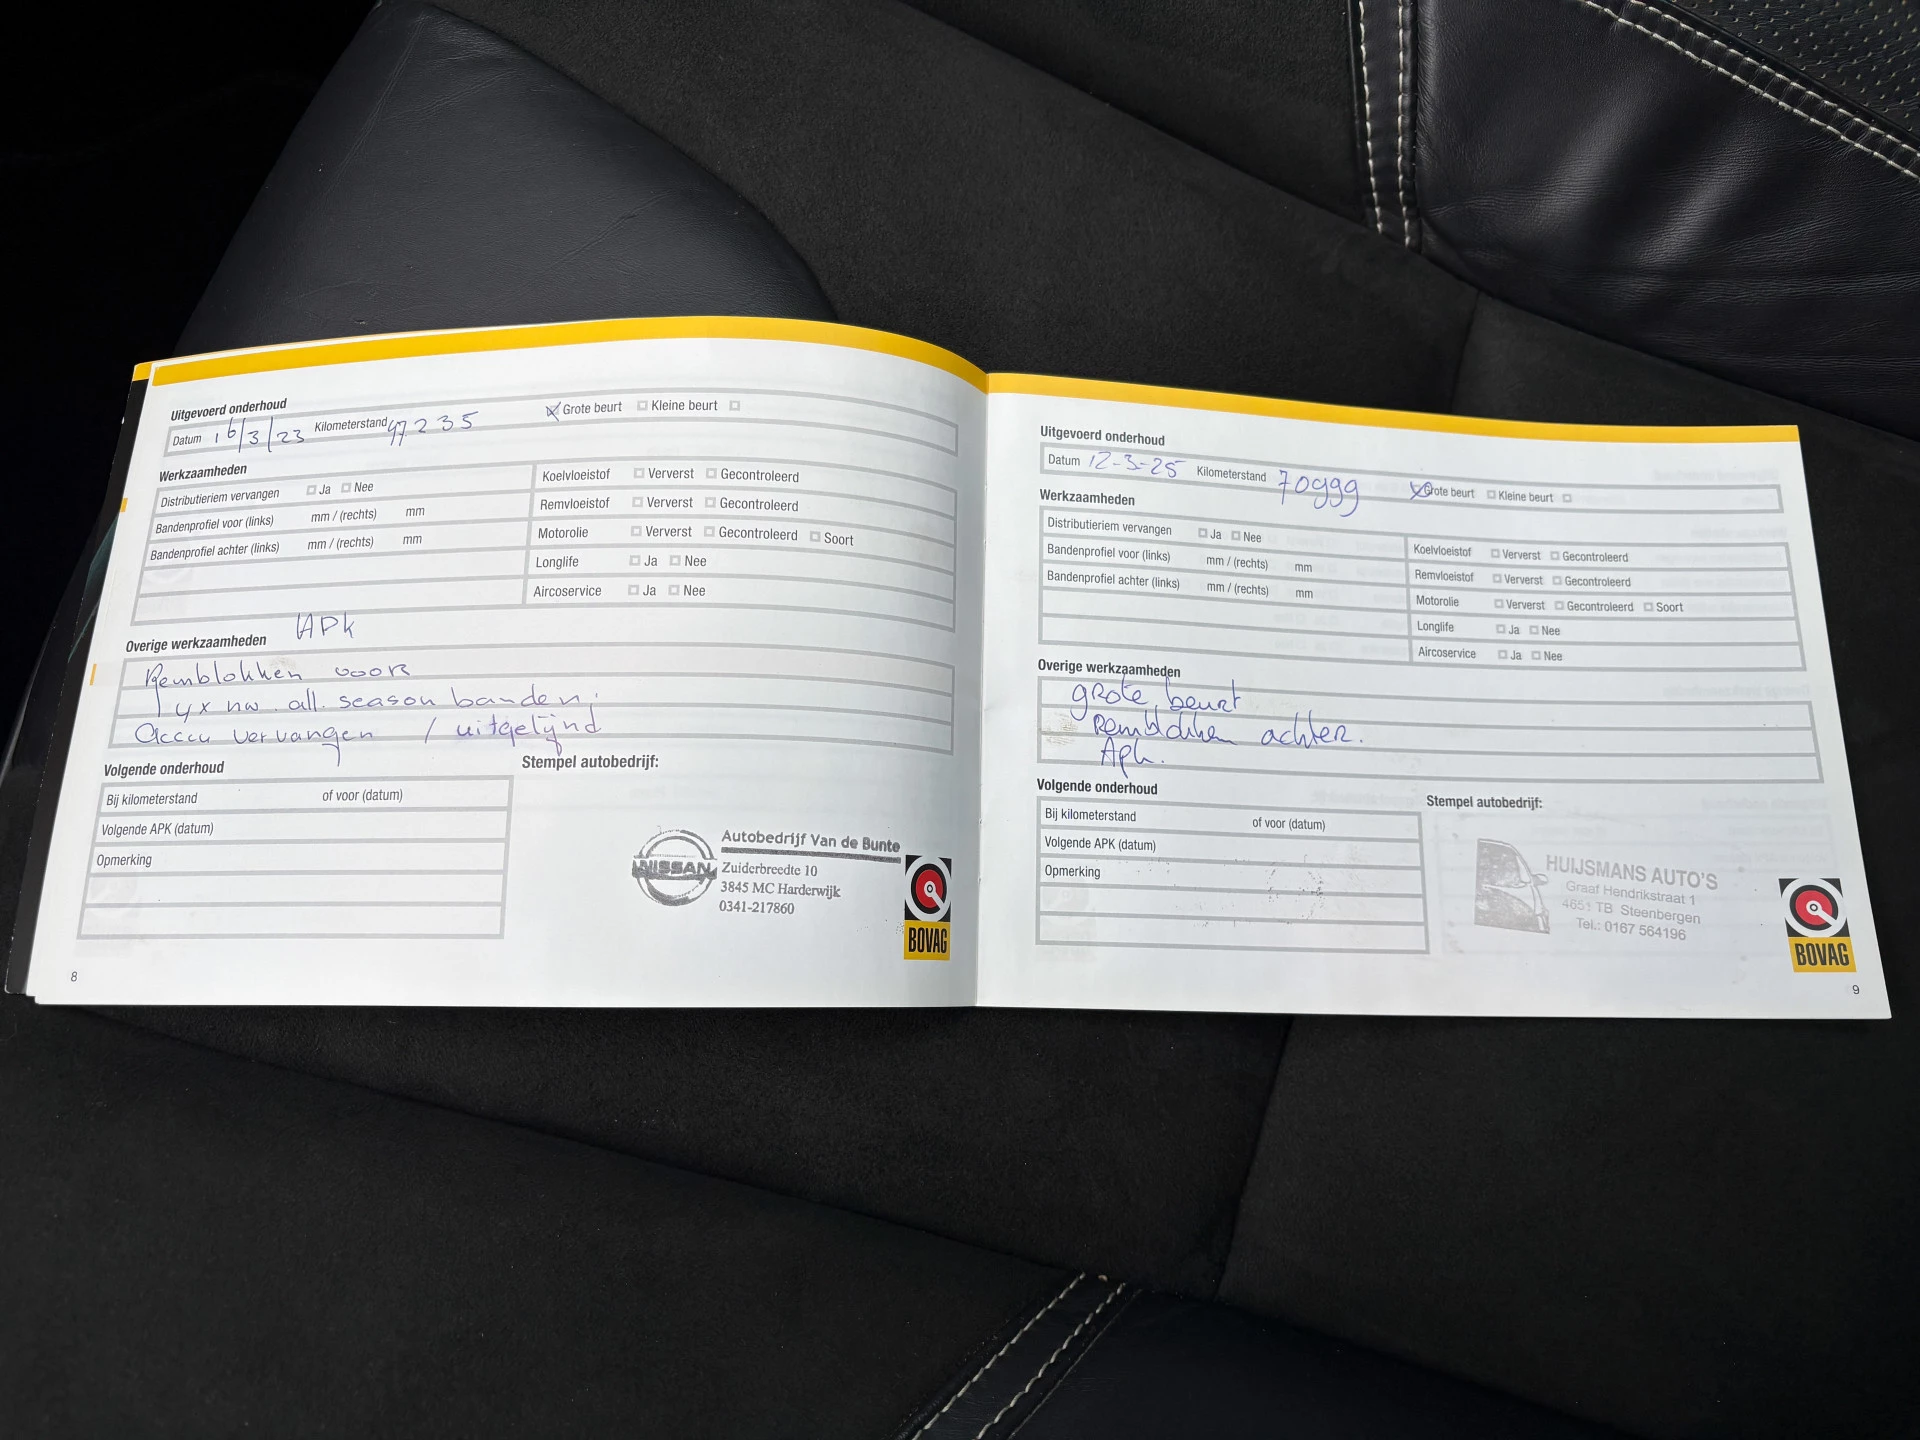 Uitgevoerd onderhoud
Datum 16/3/23 Kilometerstand 47235 Grote beurt Kleine beurt
Werkzaamheden
Distributieriem vervangen Ja Nee
Bandenprofiel voor (links) mm / (rechts) mm
Bandenprofiel achter (links) mm / (rechts) mm
Koelvloeistof Ververst Gecontroleerd
Remvloeistof Ververst Gecontroleerd
Motorolie Ververst Gecontroleerd Soort
Longlife Ja Nee
Aircoservice Ja Nee
Overige werkzaamheden APK
Remblokken voor
4x nw. all. season banden.
Accu vervangen / uitgelijnd
Volgende onderhoud
Bij kilometerstand of voor (datum)
Volgende APK (datum)
Opmerking
Stempel autobedrijf:
NISSAN
Autobedrijf Van de Bunte
Zuiderbreedte 10
3845 MC Harderwijk
0341-217860
BOVAG
8
Uitgevoerd onderhoud
Datum 12-3-25 Kilometerstand 70999 Grote beurt Kleine beurt
Werkzaamheden
Distributieriem vervangen Ja Nee
Bandenprofiel voor (links) mm / (rechts) mm
Bandenprofiel achter (links) mm / (rechts) mm
Koelvloeistof Ververst Gecontroleerd
Remvloeistof Ververst Gecontroleerd
Motorolie Ververst Gecontroleerd Soort
Longlife Ja Nee
Aircoservice Ja Nee
Overige werkzaamheden
grote beurt
Remblokken achter.
Apk.
Volgende onderhoud
Bij kilometerstand of voor (datum)
Volgende APK (datum)
Opmerking
Stempel autobedrijf:
HUIJSMANS AUTO'S
Graaf Hendrikstraat 1
4651 TB Steenbergen
Tel.: 0167 564196
BOVAG
9